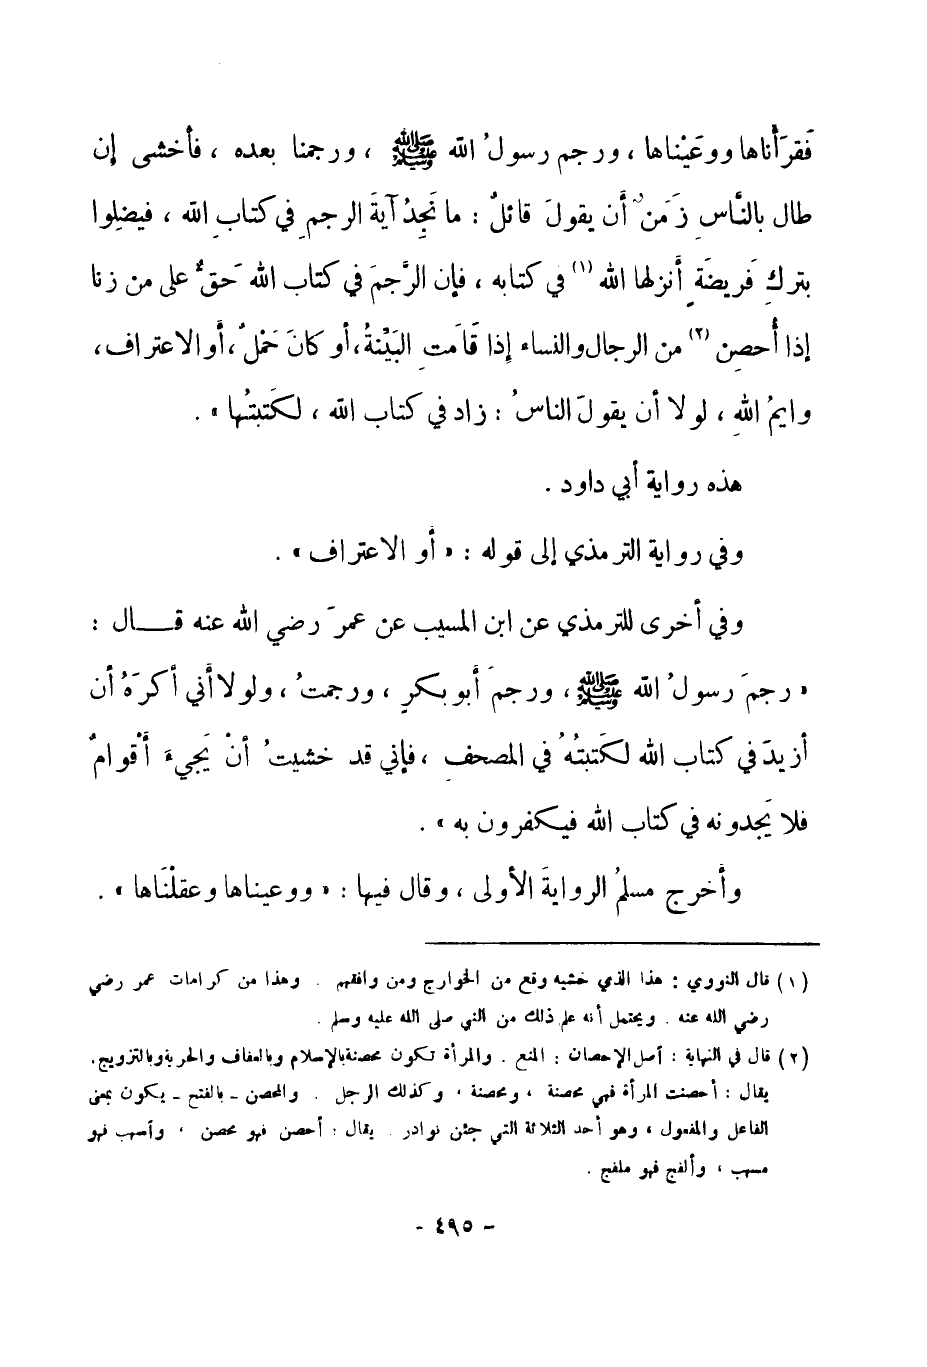 فَقرَأناها ووَعَيْناها ، ورجم رسولُ الله ﷺ ، ورجمنا بعده ، فأخشى إن
طال بالنَّاسِ زَمَنٌ أن يقولَ قائلٌ : ما نَجِدُ آيةَ الرجمِ في كتابِ الله ، فيضلِوا
بتركِ فَريضَةٍ أنزلها الله (١) في كتابه ، فإن الرَّجمَ في كتاب الله حَقٌّ على من زنا
إذا أُحصِن (٢) من الرجال والنساء إذا قَامَتِ البَيِّنةُ، أو كانَ حَمْلٌ ، أو الاعتراف ،
وايمُ اللهِ ، لولا أن يقولَ الناسُ : زاد في كتاب الله ، لكَتبتُها » .
هذه رواية أبي داود .
وفي رواية الترمذي إلى قوله : « أو الاعتراف » .
وفي أخرى للترمذي عن ابن المسيب عن عمرَ رضي الله عنه قـــال :
« رجمَ رسولُ الله ﷺ ، ورجمَ أبو بكرٍ ، ورجمتُ ، ولولا أني أكرَهُ أن
أزيدَ في كتاب الله لكَتبتُهُ في المصحفِ ، فإني قد خشيتُ أنْ يَجيءَ أقْوامٌ
فلا يَجدونه في كتاب الله فيكفرون به » .
وأخرج مسلمُ الروايةَ الأولى ، وقال فيها : « ووعيناها وعقلْنَاها » .
(١) قال النووي : هذا الذي خشيه وقع من الخوارج ومن وافقهم . وهذا من كرامات عمر رضي
رضي الله عنه . ويحتمل أنه علم ذلك من النبي صلى الله عليه وسلم .
(٢) قال في النهاية : أصل الإحصان : المنع . والمرأة تكون محصنة بالإسلام وبالعفاف والحرية وبالتزويج.
يقال : أحصنت المرأة فهي محصنة ، ومحصنة ، وكذلك الرجل . والمحصن - بالفتح - يكون بمعنى
الفاعل والمفعول ، وهو أحد الثلاثة التي جئن نوادر . يقال : أحصن فهو محصن ، وأسهب فهو
مسهب ، وألفج فهو ملفج .
- ٤٩٥ -